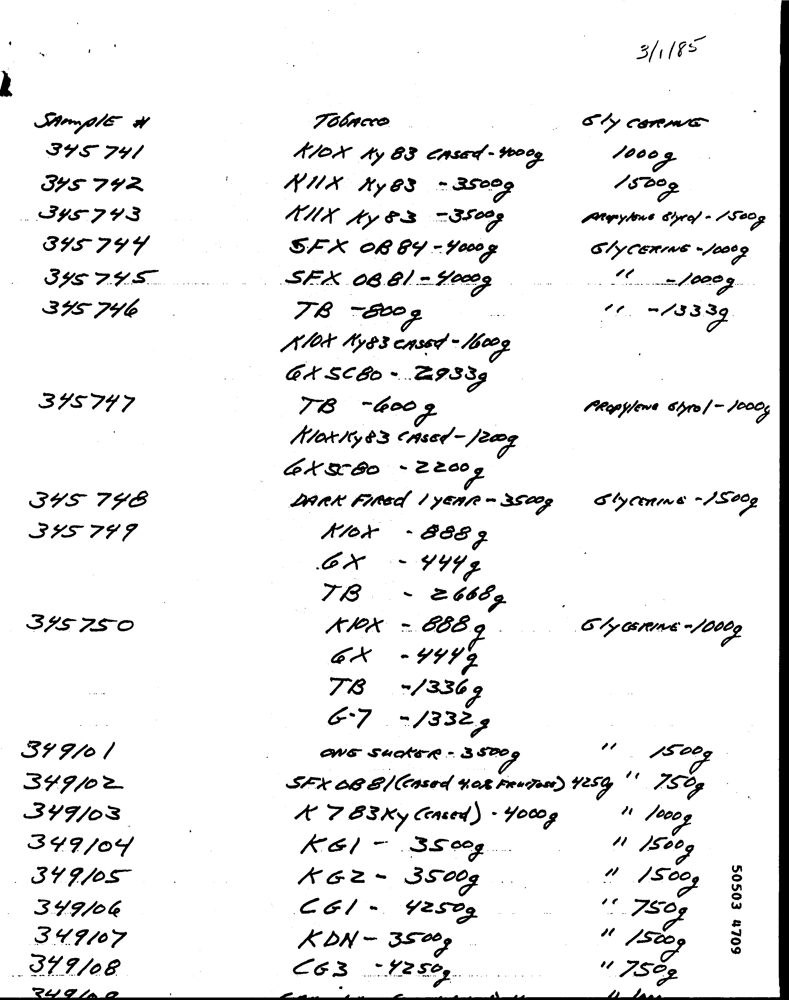 3/1/85
SAmplE # TobAcco GlycERINE
345741 K10X Ky 83 CASEd - 4000g 1000g
345742 K11X Ky83 - 3500g 1500g
345743 K11X Ky83 - 3500g PRopylene Glycol - 1500g
345744 SFX OB84 - 4000g GlYCERINE - 1000g
345745 SFX OB81 - 4000g " - 1000g
345746 TB - 800g " - 1333g
K10X Ky83 CASEd - 1600g
GX5CBO - 2933g
345747 TB - 600g PRopylene Glycol - 1000g
K10X Ky83 CASEd - 1200g
GX5CBO - 2200g
345748 DARK FIREd 1 yEAR - 3500g GlycERINE - 1500g
345749 K10X - 888g
GX - 444g
TB - 2668g
345750 K10X - 888g GlycERINE - 1000g
GX - 444g
TB - 1336g
G-7 - 1332g
349101 ONE SUCKER - 3500g " 1500g
349102 SFX OB81 (CASEd 4.0% FRUCTOSE) 4250g " 750g
349103 K7 83Ky (CASEd) - 4000g " 1000g
349104 KG1 - 3500g " 1500g
349105 KG2 - 3500g " 1500g
349106 CG1 - 4250g " 750g
349107 KDN - 3500g " 1500g
349108 CG3 - 4250g " 750g
50503 4709